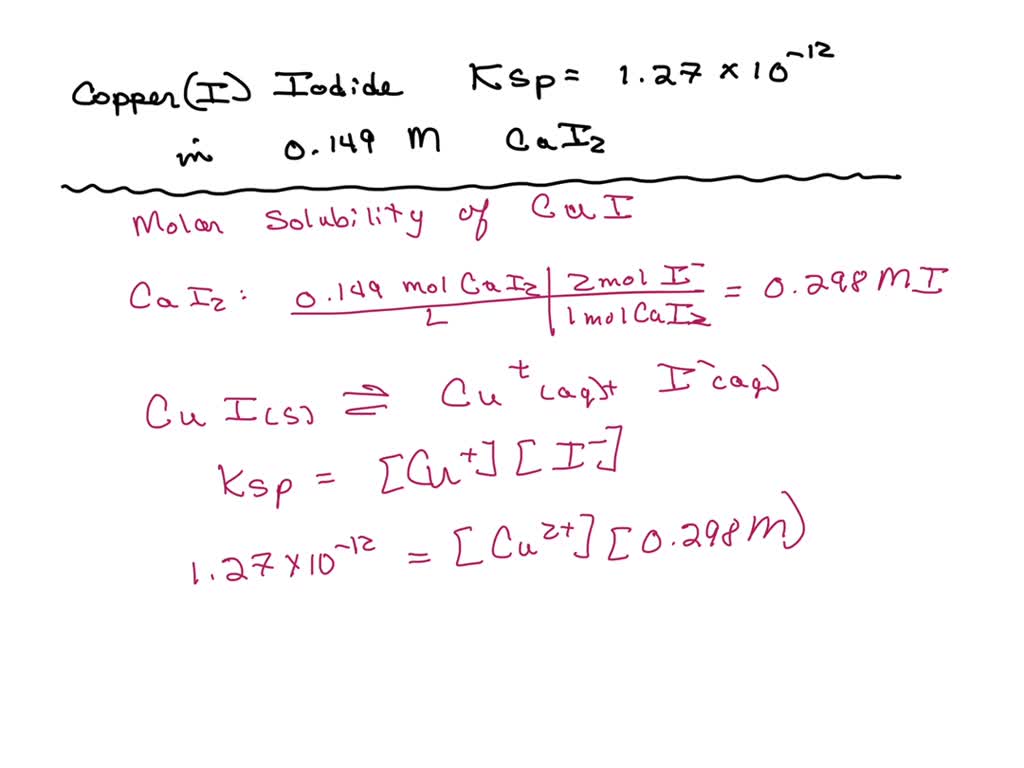 Copper(I) Iodide Ksp = 1.27 × 10⁻¹²
in 0.149 M CaI₂
Molar Solubility of CuI
CaI₂: 0.149 mol CaI₂ / L | 2 mol I⁻ / 1 mol CaI₂ = 0.298 M I
Cu I(s) ⇌ Cu⁺(aq) + I⁻(aq)
Ksp = [Cu⁺][I⁻]
1.27 × 10⁻¹² = [Cu²⁺][0.298 M)